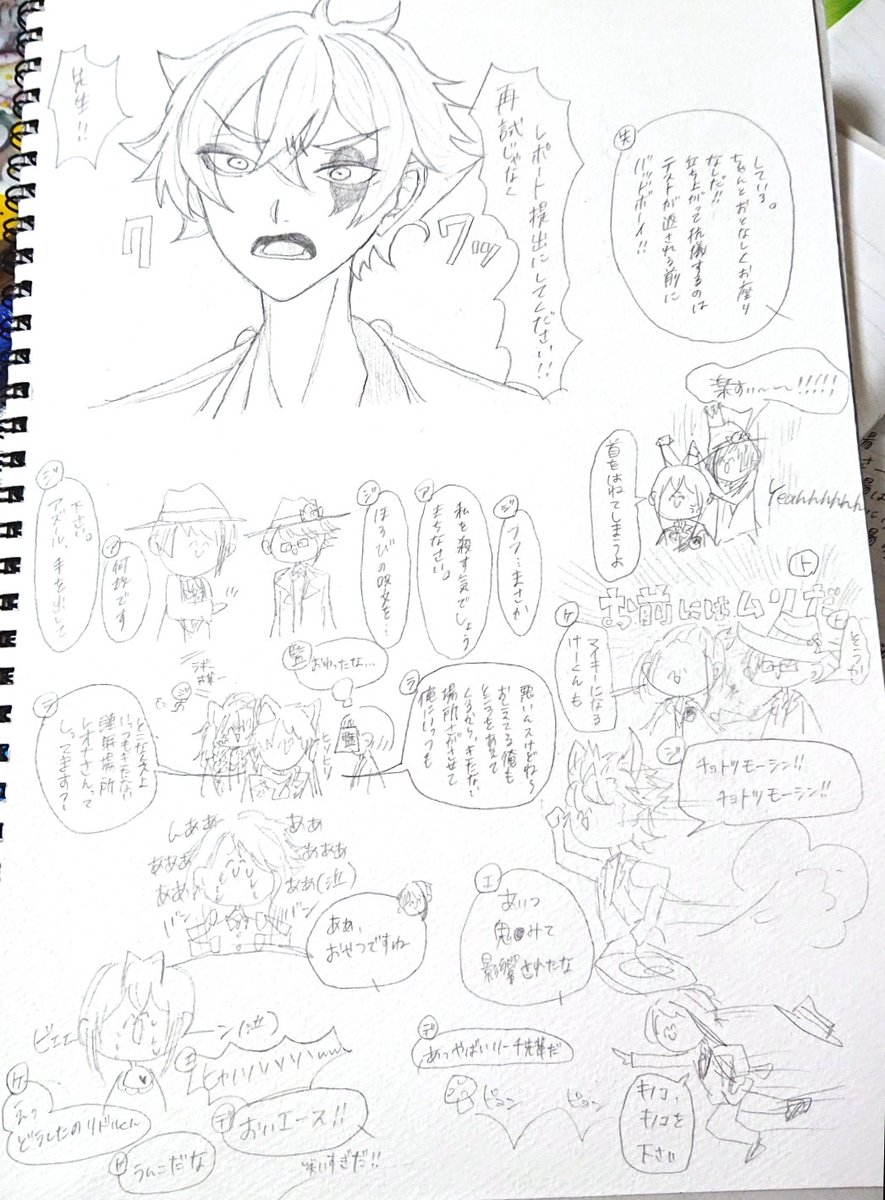 先
している。
ちゃんとおとなしくお座り
なんだ!!
立ち上がって抗議するのは
テストが返される前に
バッドボーイ!!
レポート提出にしてください!!
再試じゃなく
先生!!
クワッ
楽すぃ〜〜〜!!!!!
Yeahhhhhhh
首をはねてしまうよ
ジ
フフ…まさか
ア
私を殺す気でしょう
まちなさい。
ジ
ほろびの呪文を…
ア
何故です
ジ
下さい。
アズール、手を出して
ト
お前にはムリだ
ト
そうか
ケ
マイキーになる
けーくんも
監
おわったな…
ラ
悪いんスけどねぇ
おしえてる俺も
ところをあえて
くるから、キたない
場所さがさせて
俺にいっつも
ヒソヒソ
ラ
いつもキたない
護身場所
レオナさんって
しってますぅ?
ジ
チョトツモーシン!!
チョトツモーシン!!
エ
あいつ
鬼●みて
影響されたな
んああ
あああ
ああ
ああ
あああ
ああ(泣)
バン
バン
ああ、
おせつですね
ビエェ
ーン(泣)
エ
ヒャハハハハwww
ケ
えっ
どうしたのリドルくん
デ
おいエース!!
笑いすぎだ!!
ト
うんこだな
デ
あっやばいリーチ先輩だ
ピョン
ピョン
キノコ、
キノコを
下さい